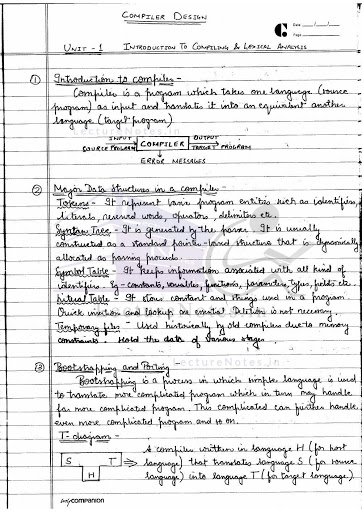 COMPILER DESIGN
Date
Page
UNIT - 1 INTRODUCTION TO COMPILING & LEXICAL ANALYSIS
① Introduction to compiler -
Compiler is a program which takes one language (source
program) as input and translates it into an equivalent another
language (target program)
LectureNotes.in
INPUT OUTPUT
SOURCE PROGRAM COMPILER TARGET PROGRAM
ERROR MESSAGES
② Major Data Structures in a compiler -
Tokens - It represent basic program entities such as identifiers,
literals, reserved words, operators, delimiters etc.
Syntax Tree - It is generated by the parser. It is usually
constructed as a standard pointer-based structure that is dynamically
allocated as parsing proceeds.
Symbol Table - It keeps information associated with all kind of
identifiers. Eg - constants, variables, functions, parameters, types, fields etc.
Literal Table - It stores constant and strings used in a program.
Quick insertion and lookup are essential. Deletion is not necessary.
Temporary files - Used historically by old compilers due to memory
constraints. Hold the data of various stages.
LectureNotes.in
③ Bootstrapping and Porting
Bootstrapping is a process in which simple language is used
to translate more complicated program which in turn may handle
far more complicated program. This complicated can further handle
even more complicated program and so on.
T-diagram -
A compiler written in language H (for host
S T language) that translates language S (for source
H language) into language T (for target language).
mycompanion